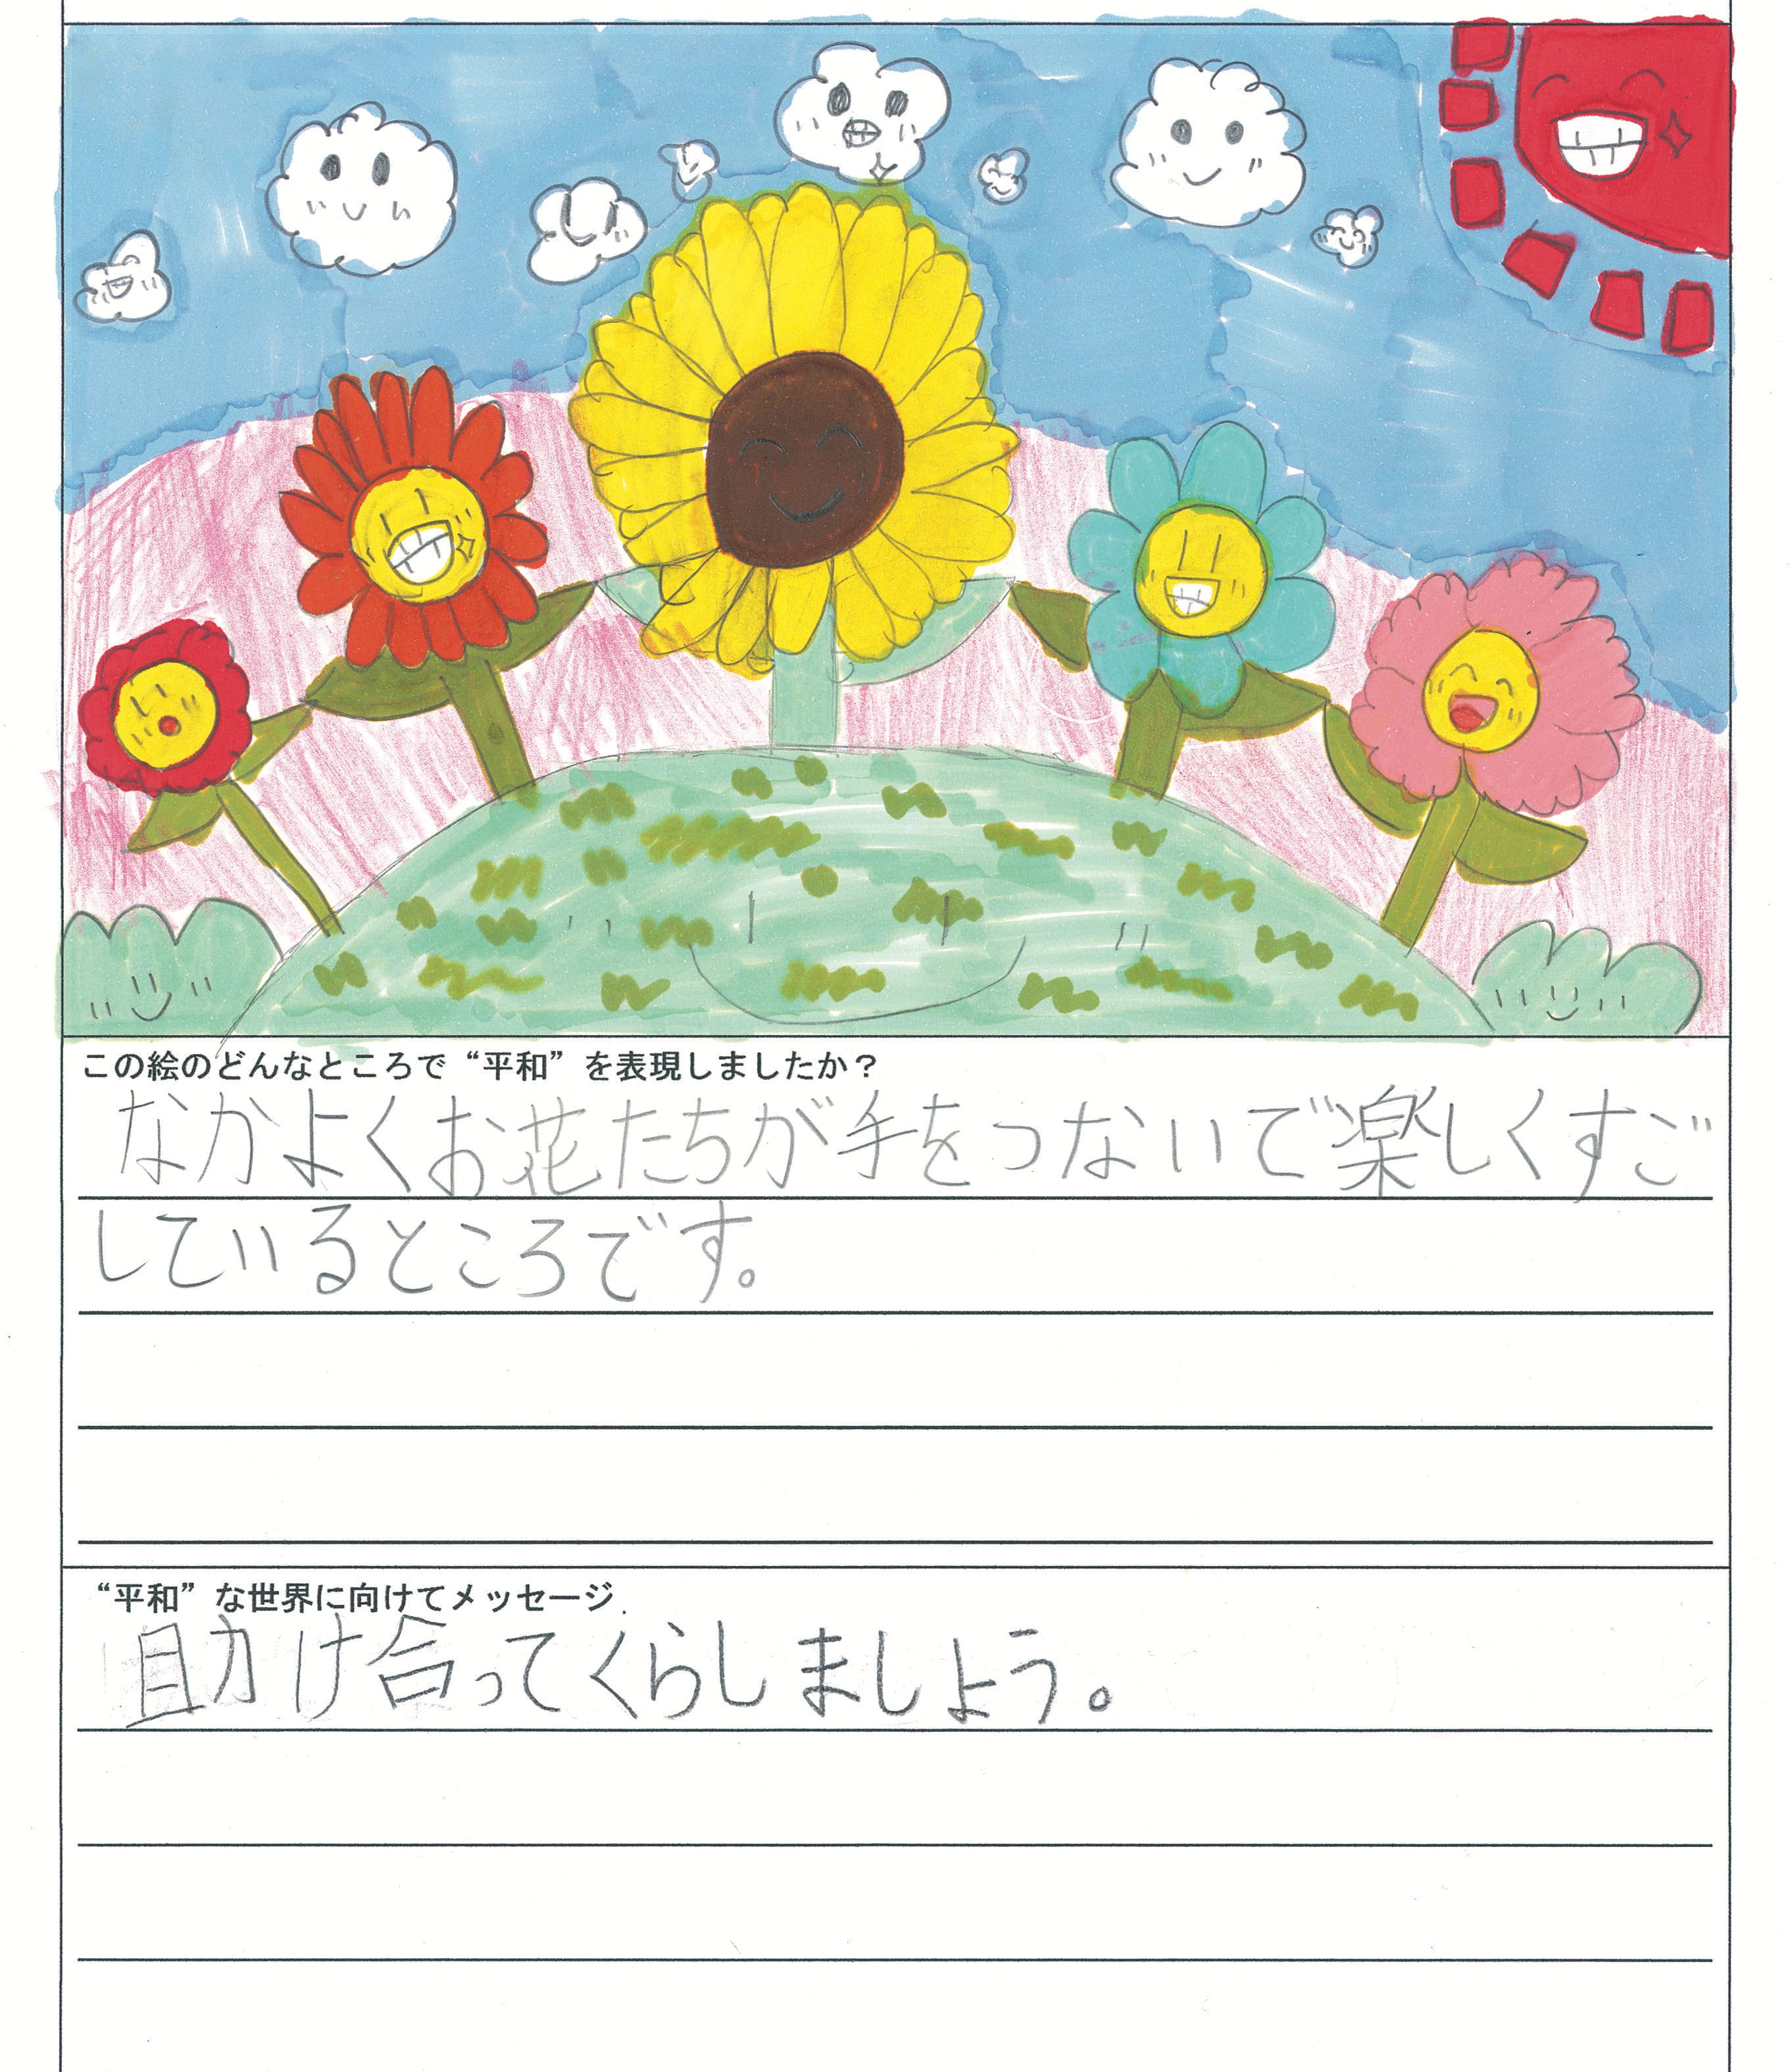 この絵のどんなところで“平和”を表現しましたか？
なかよくお花たちが手をつないで楽しくすご
しているところです。
“平和”な世界に向けてメッセージ
助け合ってくらしましょう。